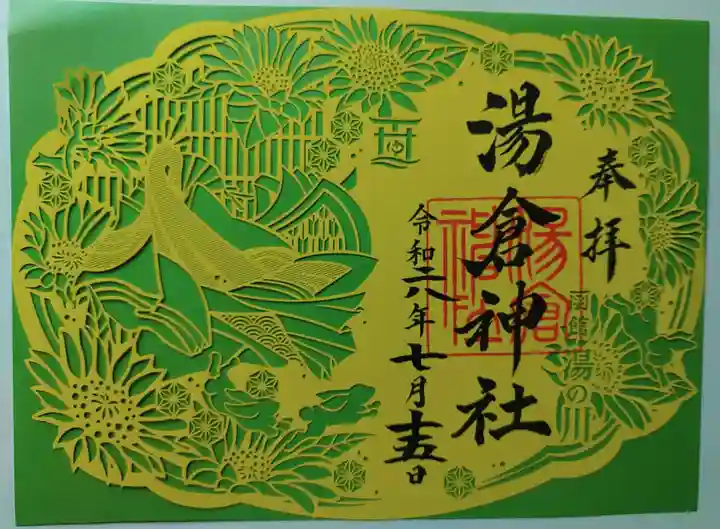 奉拝
函館湯の川
湯倉神社
湯倉
神社
令和六年七月十五日
ゆ